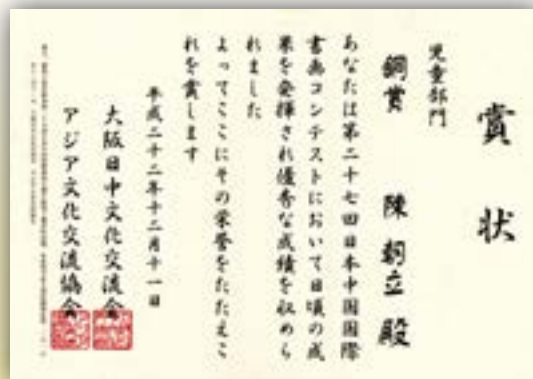 賞状
児童部門
銅賞 陳朝立 殿
あなたは第二十七回日本中国国際
書画コンテストにおいて日頃の成
果を発揮され優秀な成績を収めら
れました
よってここにその栄誉をたたえこ
れを賞します
平成二十二年十二月十一日
大阪日中文化交流会
アジア文化交流協会